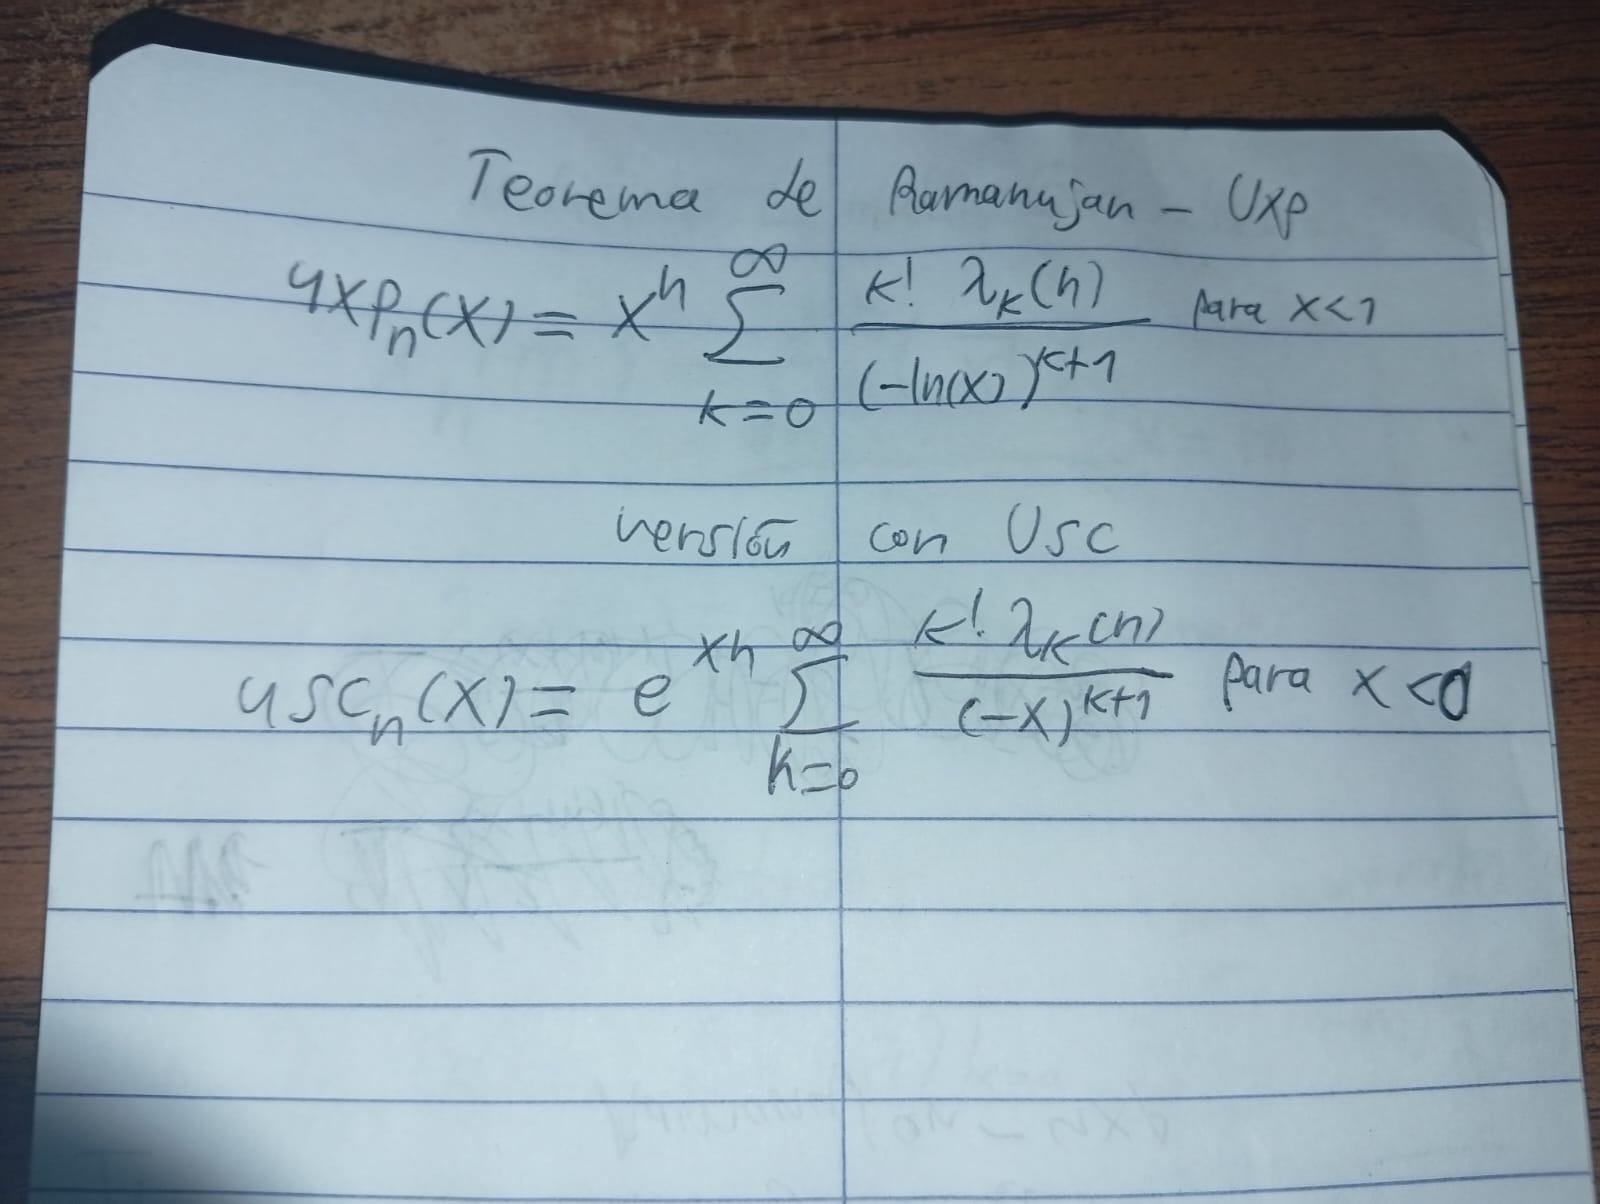 Teorema de Ramanujan - Uxp
uxpₙ(x) = xⁿ ∑_{k=0}^{∞} k! λₖ(n) / (-ln(x))^{k+1} para x<1
versión con Usc
uscₙ(x) = e^{xn} ∑_{k=0}^{∞} k! λₖ(n) / (-x)^{k+1} para x<0